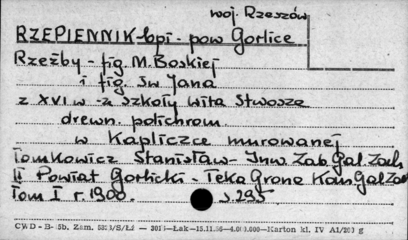 woj. Rzeszów
RZEPIENNIK-bpi- pow Gorlice
Rzeźby - fig. M. Boskiej
i fig. św Jana
z XVI w -ze szkoły Wita Stwosza
drewn. polichrom.
w Kapliczce murowanej
Tomkowicz Stanisław- Inw. Zab. Gal. Zach
II Powiat Gorlicki - Teka Grona Kon. Gal Zach
Tom I r. 1900. s. 295
CWD - B-5b. Zam. /S/Łż — — Łak —15.11.56— 4.000.000—Karton kl. IV A1/200 g